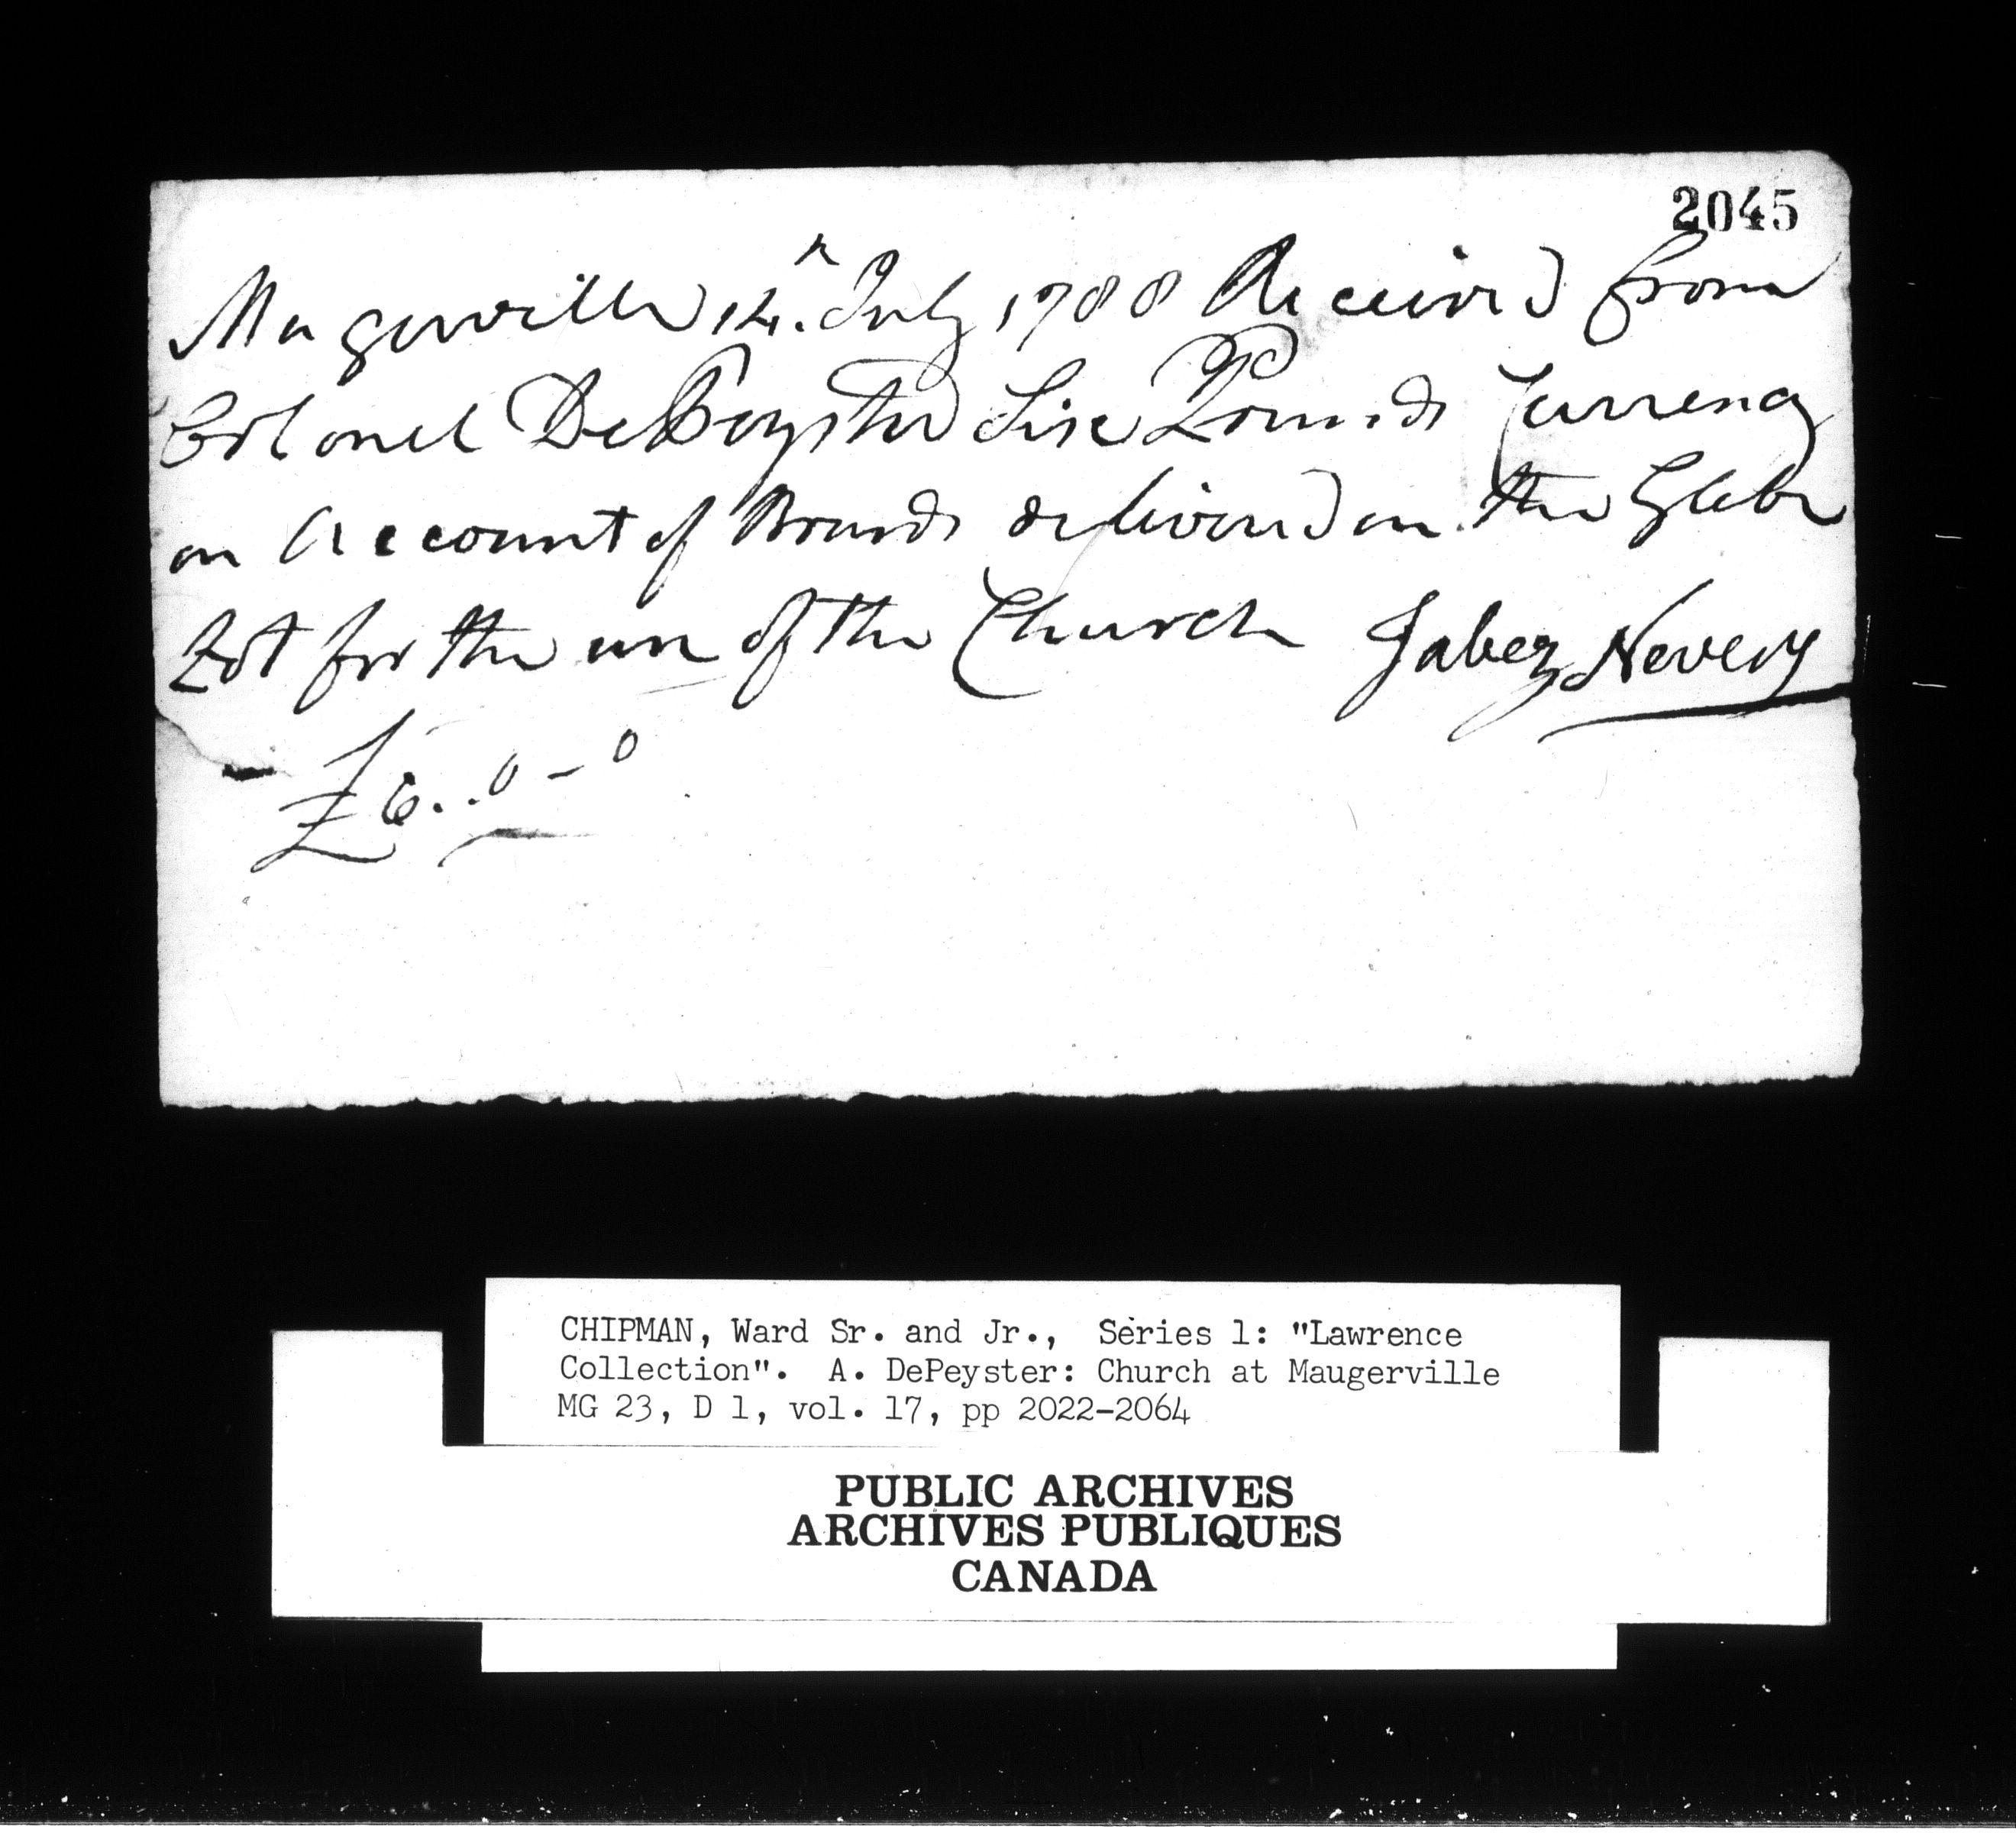 2045
Magerville 14.th July 1788 Received from
Colonel DePeyster Six Pounds Currency
on Account of Boards delivered on the Glebe
Lot for the use of the Church Jabez Nevers
£6..0-0
CHIPMAN, Ward Sr. and Jr., Series 1: "Lawrence
Collection". A. DePeyster: Church at Maugerville
MG 23, D 1, vol. 17, pp 2022-2064
PUBLIC ARCHIVES
ARCHIVES PUBLIQUES
CANADA